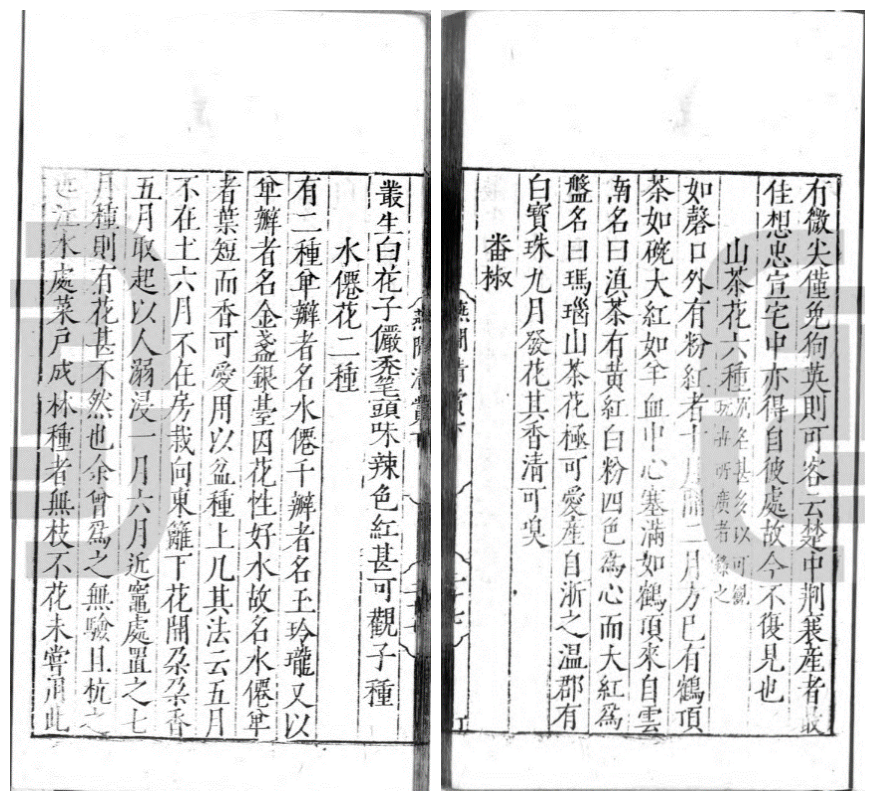 有微尖僅免狗英則可客云楚中荆襄産者最
佳想忠宣宅中亦得自彼處故今不復見也
山茶花六種
如磬口外有粉紅者十月開二月方已有鶴頂
茶如碗大紅如羊血中心塞滿如鶴頂來自雲
南名曰滇茶有黄紅白粉四色爲心而大紅爲
盤名曰瑪瑙山茶花極可愛産自浙之温郡有
白寶珠九月發花其香清可嗅
番椒
燕閒清賞
叢生白花子儼禿筆頭味辣色紅甚可觀子種
水僊花二種
有二種单瓣者名水僊千瓣者名玉玲瓏又以
单瓣者名金盞銀臺因花性好水故名水僊单
者葉短而香可愛用以盆種上几其法云五月
不在土六月不在房栽向東籬下花開朶朶香
五月取起以人溺浸一月六月近竈處置之七
月種則有花甚不然也余曾爲之無驗且杭之
近江水處菜戸成林種者無枝不花未嘗用此